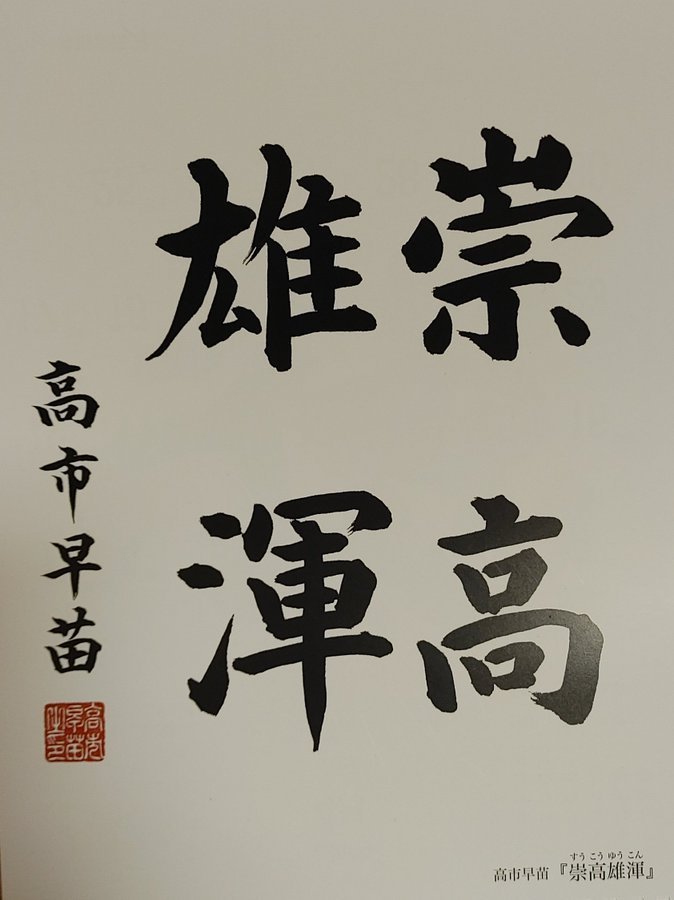 崇高
雄渾
高市早苗
高市早苗之印
すうこうゆうこん
高市早苗『崇高雄渾』